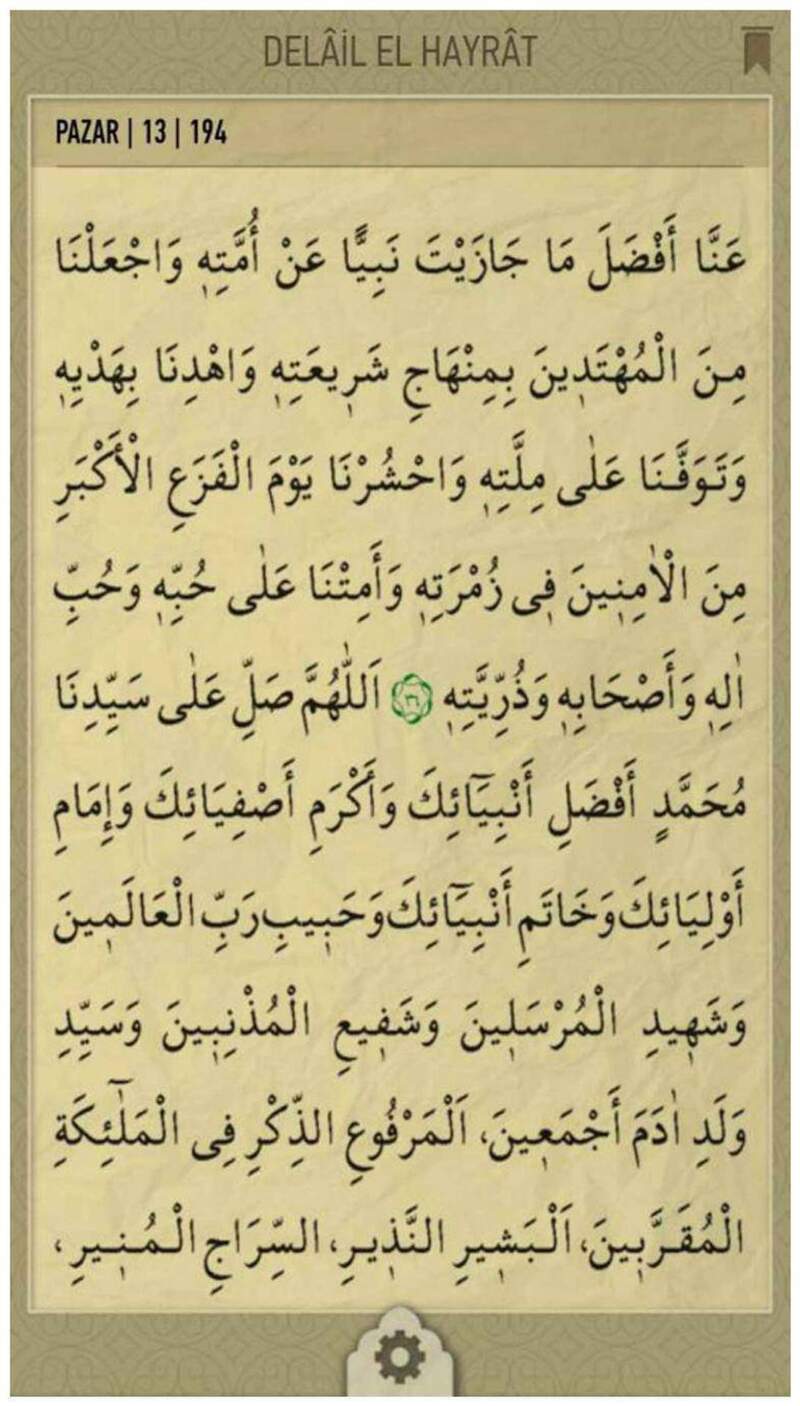 DELÂİL EL HAYRÂT
PAZAR | 13 | 194
عَنَّا أَفْضَلَ مَا جَازَيْتَ نَبِيًّا عَنْ أُمَّتِهٖ وَاجْعَلْنَا
مِنَ الْمُهْتَدٖينَ بِمِنْهَاجِ شَرٖيعَتِهٖ وَاهْدِنَا بِهَدْيِهٖ
وَتَوَفَّنَا عَلٰى مِلَّتِهٖ وَاحْشُرْنَا يَوْمَ الْفَزَعِ الْأَكْبَرِ
مِنَ الْاٰمِنٖينَ فٖى زُمْرَتِهٖ وَأَمِتْنَا عَلٰى حُبِّهٖ وَحُبِّ
اٰلِهٖ وَأَصْحَابِهٖ وَذُرِّيَّتِهٖ ۞ اَللّٰهُمَّ صَلِّ عَلٰى سَيِّدِنَا
مُحَمَّدٍ أَفْضَلِ أَنْبِيَٓائِكَ وَأَكْرَمِ أَصْفِيَائِكَ وَإِمَامِ
أَوْلِيَائِكَ وَخَاتَمِ أَنْبِيَٓائِكَ وَحَبٖيبِ رَبِّ الْعَالَمٖينَ
وَشَهٖيدِ الْمُرْسَلٖينَ وَشَفٖيعِ الْمُذْنِبٖينَ وَسَيِّدِ
وَلَدِ اٰدَمَ أَجْمَعٖينَ، اَلْمَرْفُوعِ الذِّكْرِ فِى الْمَلٰٓئِكَةِ
الْمُقَرَّبٖينَ، اَلْبَشٖيرِ النَّذٖيرِ، السِّرَاجِ الْمُنٖيرِ،